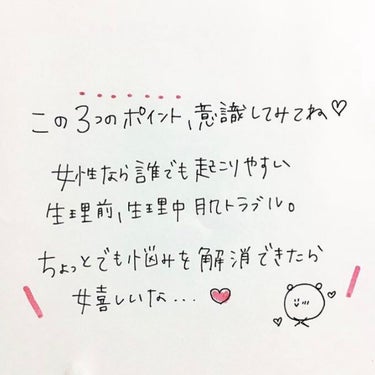 この3つのポイント、意識してみてね♡
女性なら誰でも起こりやすい
生理前、生理中肌トラブル。
ちょっとでも悩みを解消できたら
嬉しいな...♥